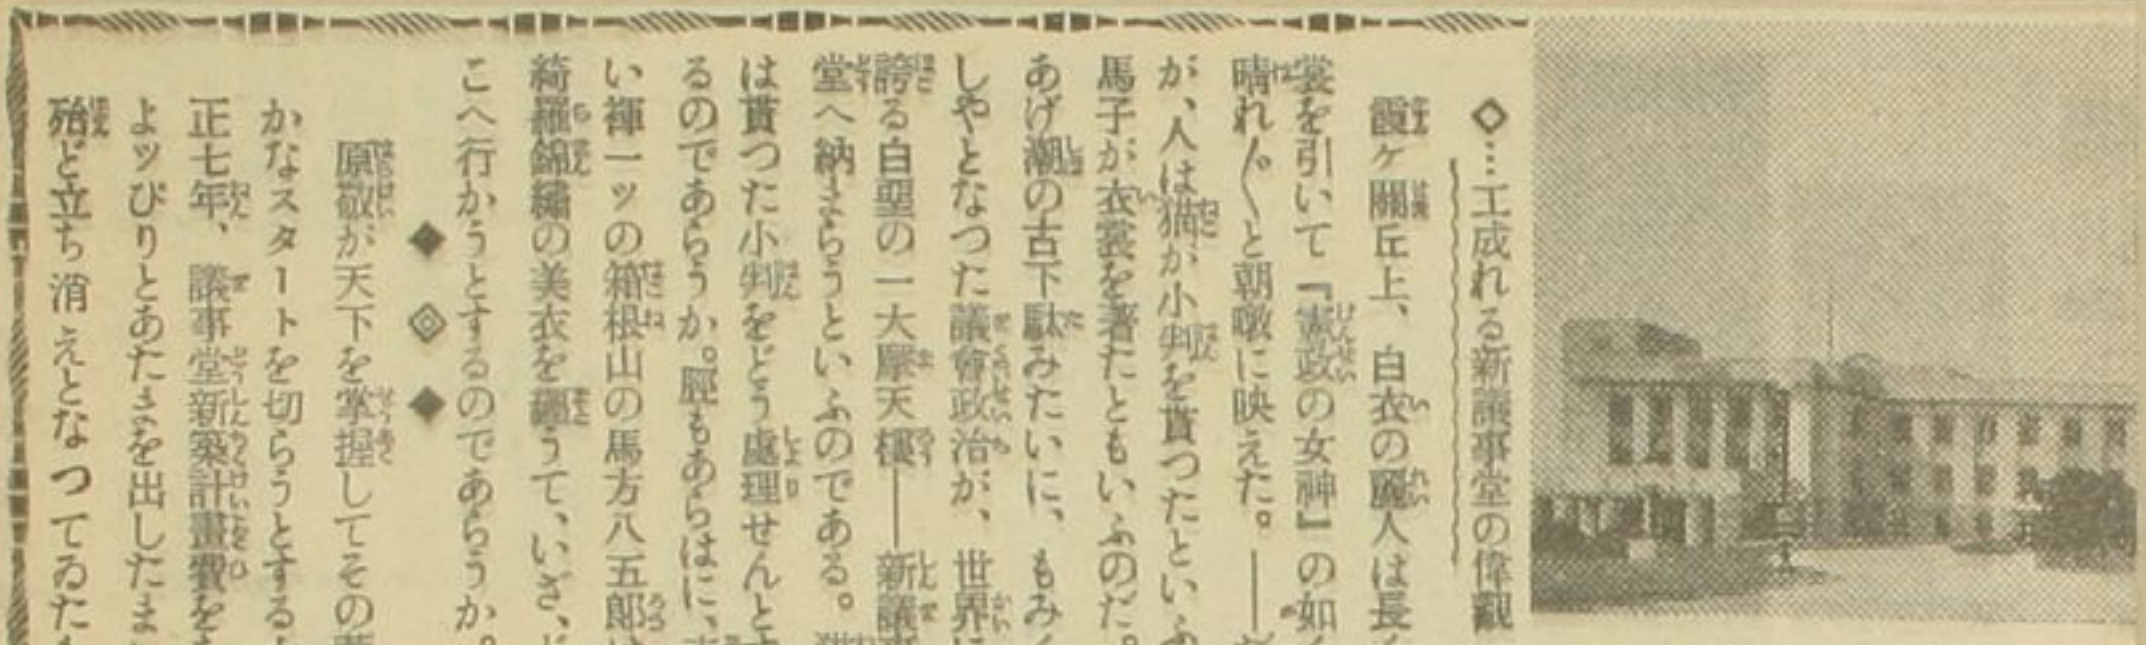 ◇…工成れる新議事堂の偉觀
霞ケ關丘上、白衣の麗人は長
裳を引いて『憲政の女神』の如
晴れ〴〵と朝暾に映えた。――
が、人は猫が小判を貰つたといふ
馬子が衣裳を著たともいふのだ。
あげ潮の古下駄みたいに、もみ
しやとなつた議會政治が、世界に
誇る白堊の一大摩天樓――新議事
堂へ納まらうといふのである。猫
は貰つた小判をどう處理せんとす
るのであらうか。脛もあらはに、
い褌一ッの箱根山の馬方八五郎は
綺羅錦繡の美衣を纏うて、いざ、ど
こへ行かうとするのであらうか。
◆◇◆
原敬が天下を掌握してその
かなスタートを切らうとする
正七年、議事堂新築計畫費を
よッぴりとあたまを出したま
殆ど立ち消えとなつてゐた